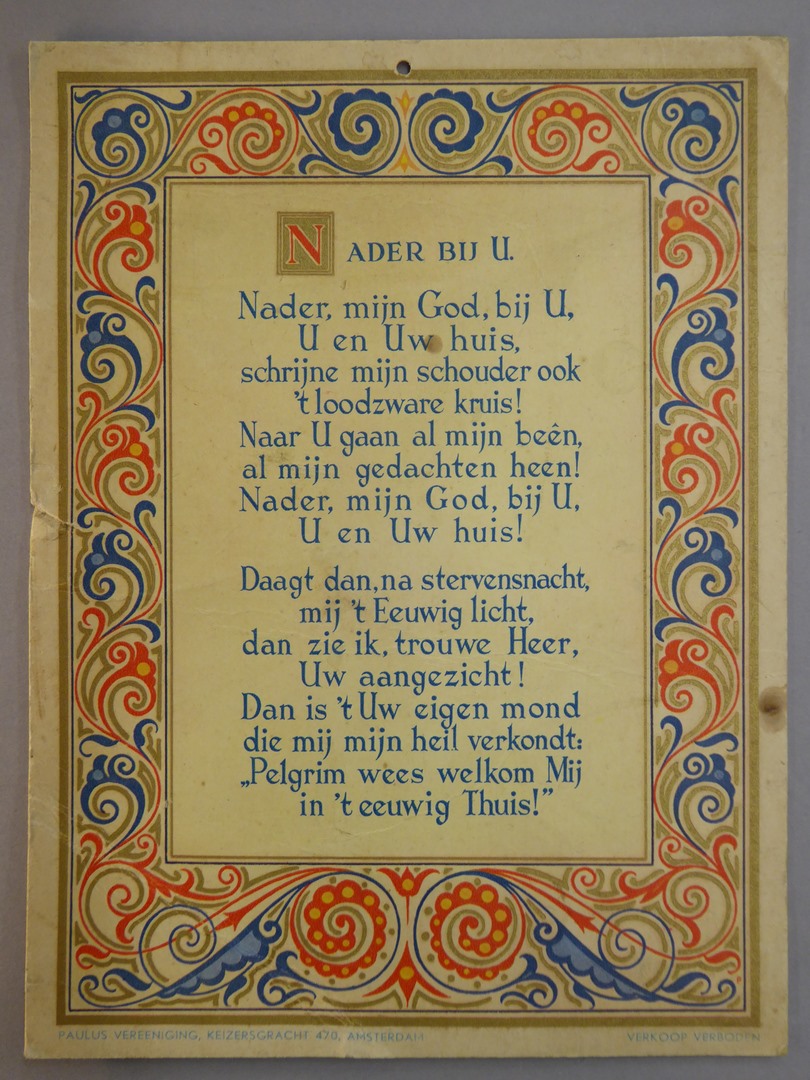 NADER BIJ U.
Nader, mijn God, bij U,
U en Uw huis,
schrijne mijn schouder ook
't loodzware kruis!
Naar U gaan al mijn beên,
al mijn gedachten heen!
Nader, mijn God, bij U,
U en Uw huis!
Daagt dan, na stervensnacht,
mij 't Eeuwig licht,
dan zie ik, trouwe Heer,
Uw aangezicht!
Dan is 't Uw eigen mond
die mij mijn heil verkondt:
„Pelgrim wees welkom Mij
in 't eeuwig Thuis!”
PAULUS VEREENIGING, KEIZERSGRACHT 470, AMSTERDAM
VERKOOP VERBODEN